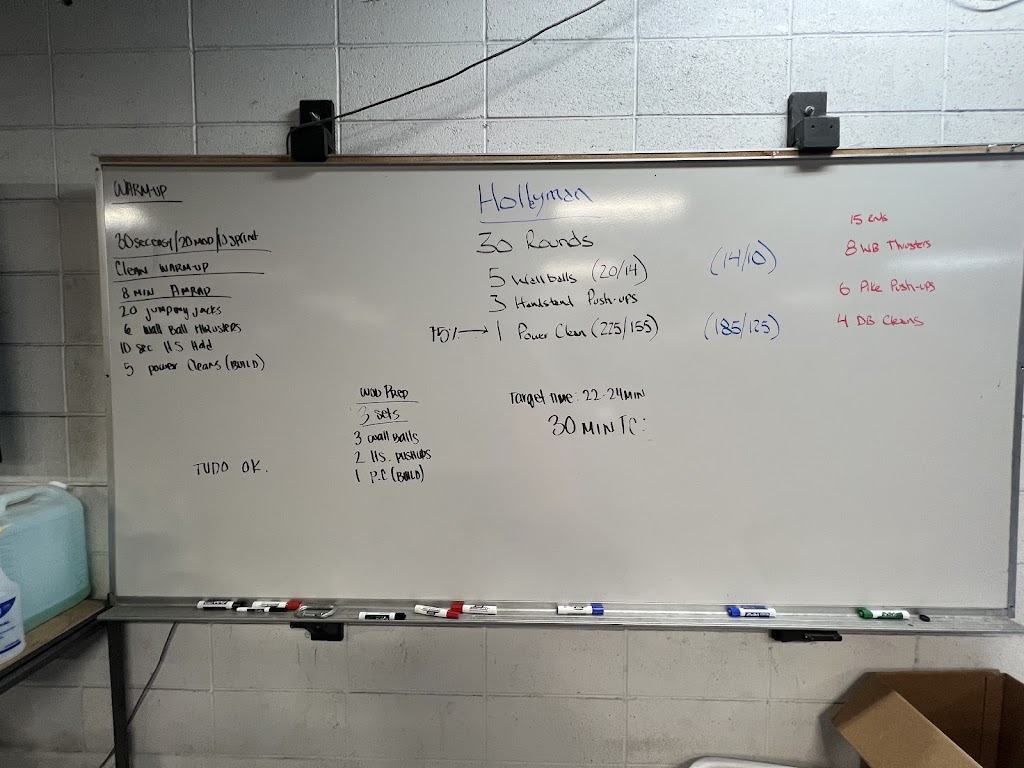 WARM-UP
30 sec easy/20 mod/10 sprint
Clean warm-up
8 min AMRAP
20 jumping jacks
6 Wall Ball thrusters
10 sec HS Hold
5 power cleans (BUILD)
TUDO OK.
WOD PREP
3 sets
3 wall balls
2 H.S. pushups
1 P.C (BUILD)
Hollyman
30 Rounds
5 Wall balls (20/14) (14/10)
3 Handstand Push-ups
75% → 1 Power Clean (225/155) (185/125)
Target time: 22-24 MIN
30 MIN TC:
15
8 WB Thrusters
6 Pike Push-ups
4 DB Cleans